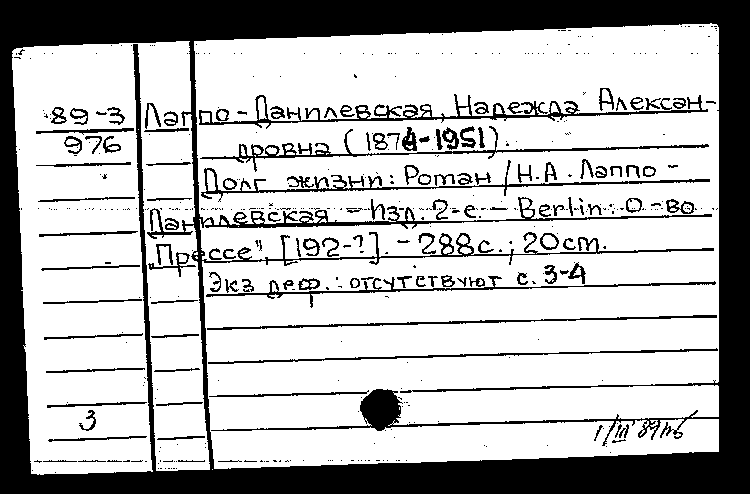 89-3 Лаппо-Данилевская, Надежда Алексан-
976 дровна (1874-1951).
Долг жизни: Роман / Н.А. Лаппо-
Данилевская. - Изд. 2-е. - Berlin: О-во
"Прессе", [192-?]. - 288с.; 20cm.
Экз деф.: отсутствуют с. 3-4
3
1/III 89